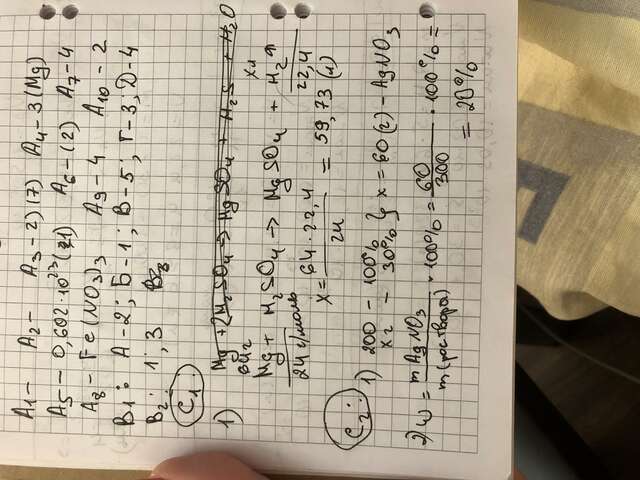 A1- A2- A3-2)(7) A4-3(Mg)
A5-0,602·10²³(21) A6-(2) A7-4
A8-Fe(NO3)3 A9-4 A10-2
B1: А-2; Б-1; В-5; Г-3; Д-4
B2: 1; 3
C1
1) Mg + 2H2SO4 → MgSO4 + H2S + H2O
64г хл
Mg + H2SO4 → MgSO4 + H2↑
24 г/моль 22,4
x = 64·22,4 / 24 = 59,73 (л)
C2: 1) 200 - 100% } x = 60(г) - AgNO3
xг - 30%
2) w = m AgNO3 / m(раствора) · 100% = 60 / 300 · 100% =
= 20%